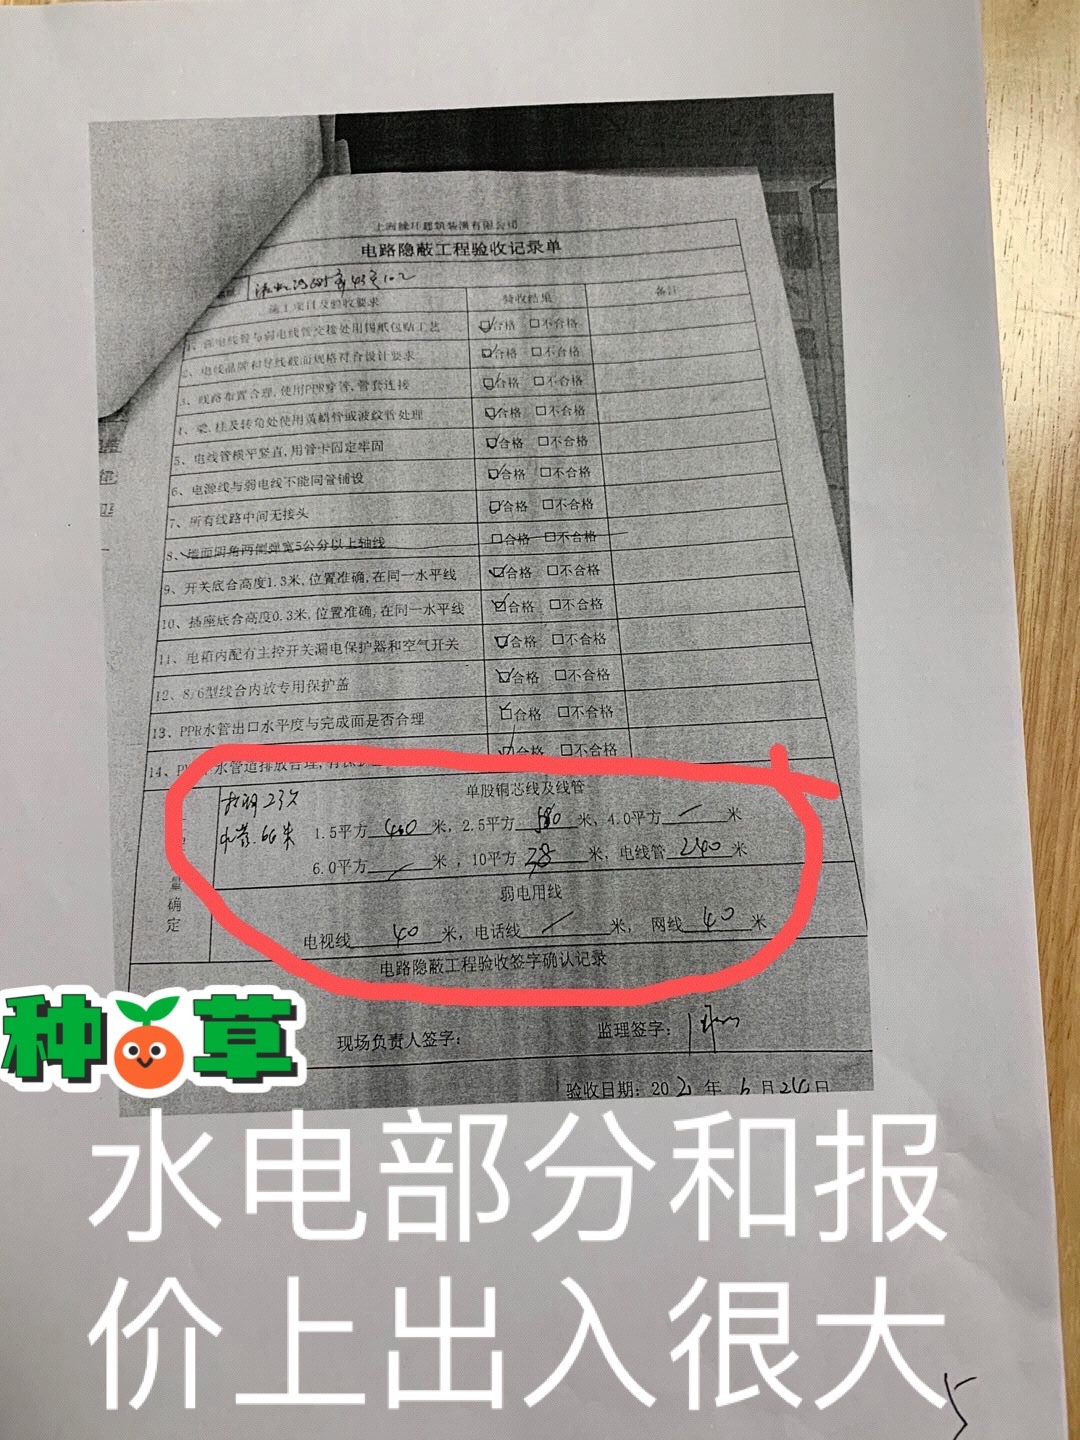 电路隐蔽工程验收记录单
施工项目及验收要求 验收结果 备注
1、强电线管与弱电线管交接处用锡纸包贴工艺 合格 不合格
2、电线品牌和导线截面规格符合设计要求 合格 不合格
3、线路布置合理,使用PPR穿管,管套连接 合格 不合格
4、梁,柱及转角处使用黄蜡管或波纹管处理 合格 不合格
5、电线管横平竖直,用管卡固定牢固 合格 不合格
6、电源线与弱电线不能同管铺设 合格 不合格
7、所有线路中间无接头 合格 不合格
8、墙面阴角两侧弹宽5公分以上轴线 合格 不合格
9、开关底合高度1.3米,位置准确,在同一水平线 合格 不合格
10、插座底合高度0.3米,位置准确,在同一水平线 合格 不合格
11、电箱内配有主控开关漏电保护器和空气开关 合格 不合格
12、8/6型线合内放专用保护盖 合格 不合格
13、PPR水管出口水平度与完成面是否合理 合格 不合格
14、 水管道排放合理, 合格 不合格
量确定
水管 66米
单股铜芯线及线管
1.5平方 400 米, 2.5平方 580 米, 4.0平方 米
6.0平方 米, 10平方 38 米, 电线管 240 米
弱电用线
电视线 40 米, 电话线 米, 网线 40 米
电路隐蔽工程验收签字确认记录
现场负责人签字: 监理签字:
验收日期: 2021年 6月 24日
种草
水电部分和报
价上出入很大
5